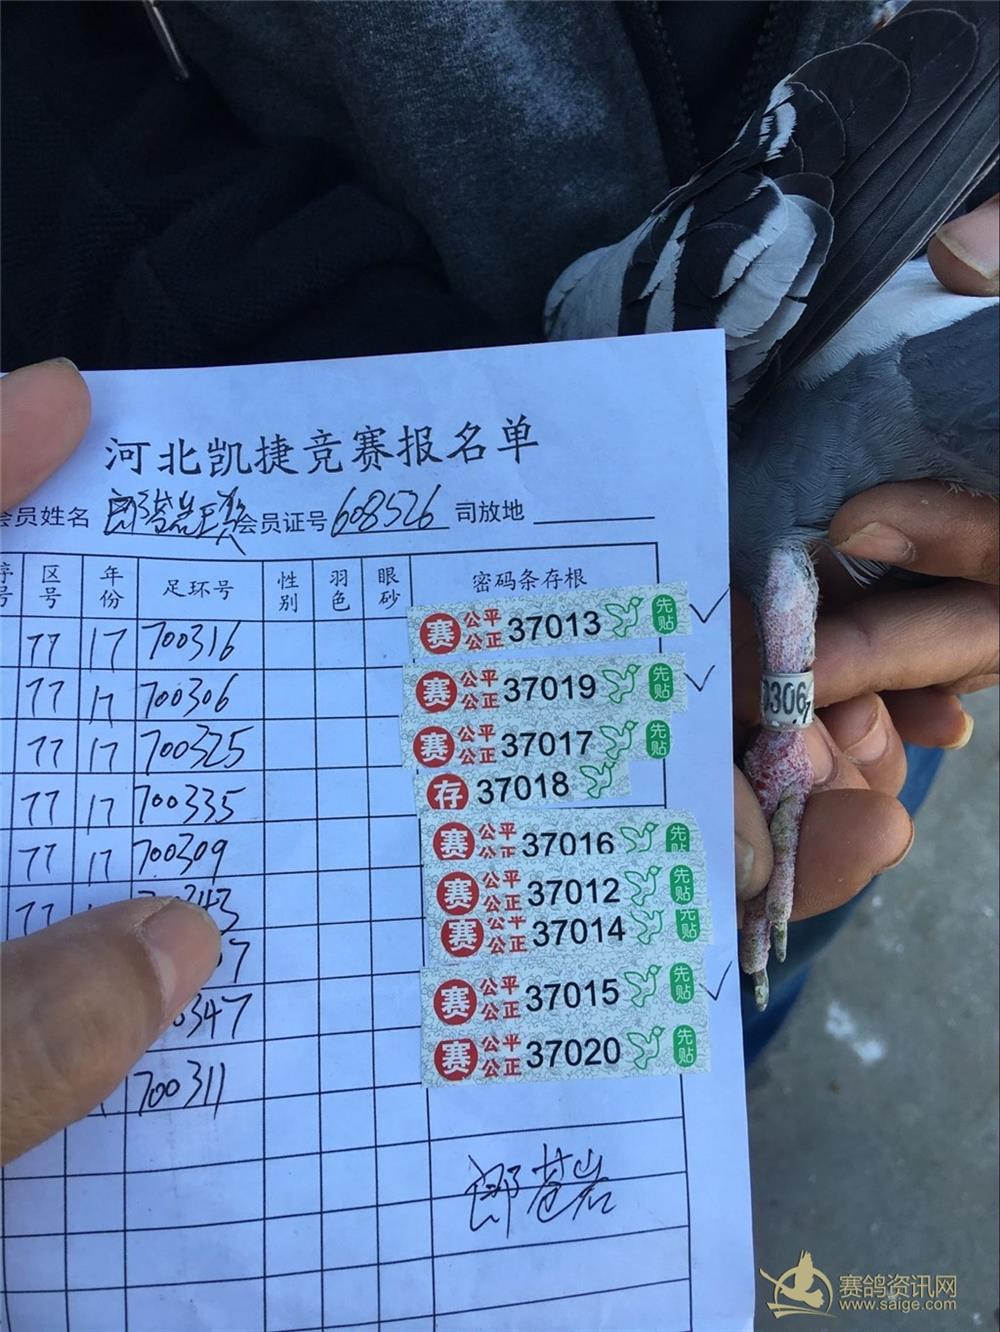 河北凯捷竞赛报名单
会员姓名 会员证号 608526 司放地
序号 区号 年份 足环号 性别 羽色 眼砂 密码条存根
77 17 700316 赛 公平公正 37013 先贴
77 17 700306 赛 公平公正 37019 先贴
77 17 700325 赛 公平公正 37017 先贴
77 17 700335 存 37018
77 17 700309 赛 公平公正 37016 先贴
77 赛 公平公正 37012 先贴
赛 公平公正 37014 先贴
赛 公平公正 37015 先贴
700311 赛 公平公正 37020 先贴
郎苍岩
0306
赛鸽资讯网
www.saige.com